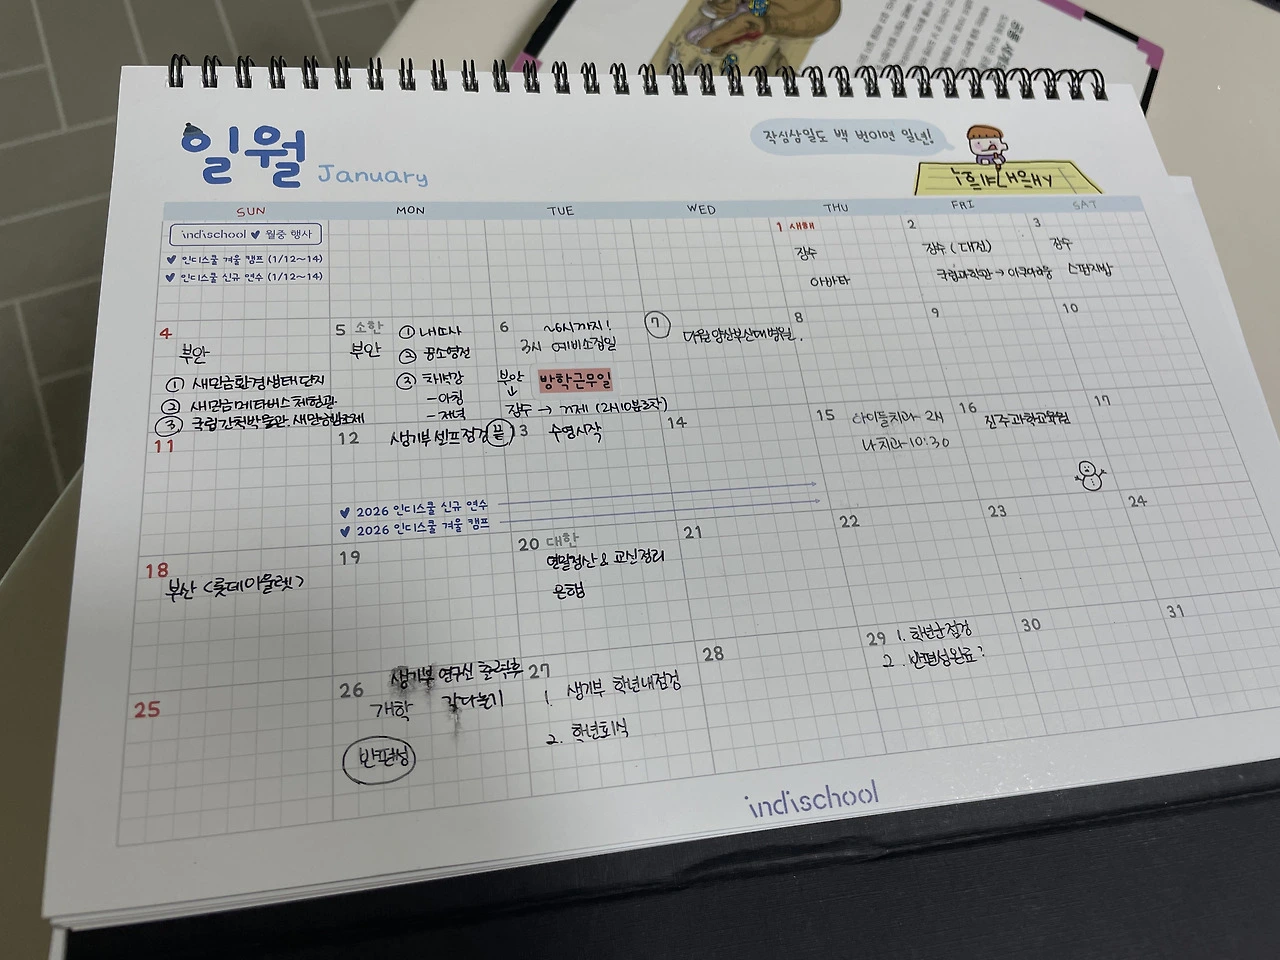 일월 January
작심삼일도 백 번이면 일년!
SUN MON TUE WED THU FRI SAT
indischool ♥ 월중 행사
♥ 인디스쿨 겨울 캠프 (1/12~14)
♥ 인디스쿨 신규 연수 (1/12~14)
1 새해
장수
아바타
2
장수 (대전)
국립과학관 → 아쿠아리움
3
장수
스펀지밥
4
부안
① 새만금환경생태단지
② 새만금메타버스체험관
③ 국립간척박물관
5 소한
부안
① 내소사
② 곰소염전
③ 채석강
-아침
-저녁
6
~6시까지!
3시 예비소집일
부안
방학근무일
↓
장수 →
7
양산부산대병원
8
9
10
11
12
생기부 셀프점검
끝
13
수영시작
14
15
아이들치과 2시
나치과 10:30
16
진주과학교육원
17
♥ 2026 인디스쿨 신규 연수
♥ 2026 인디스쿨 겨울 캠프
18
부산 <롯데아울렛>
19
20 대한
연말정산 & 교실정리
은행
21
22
23
24
25
26
생기부 연구실 출력후
개학 갖다놓기
반편성
27
1. 생기부 학년내점검
2. 학년회식
28
29 1. 학년군점검
2. 반편성완료?
30
31
indischool